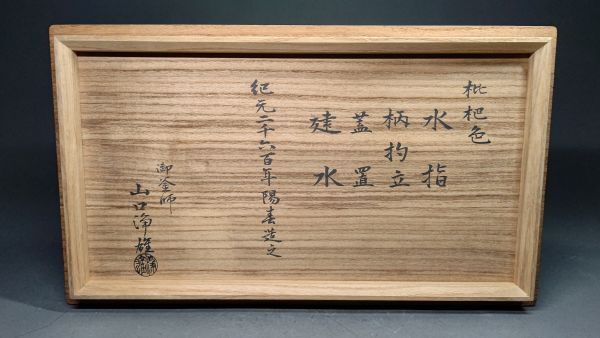 枇杷色
水指
柄杓立
蓋置
建水
紀元二千六百年陽春造之
御釜師
山口浄雄